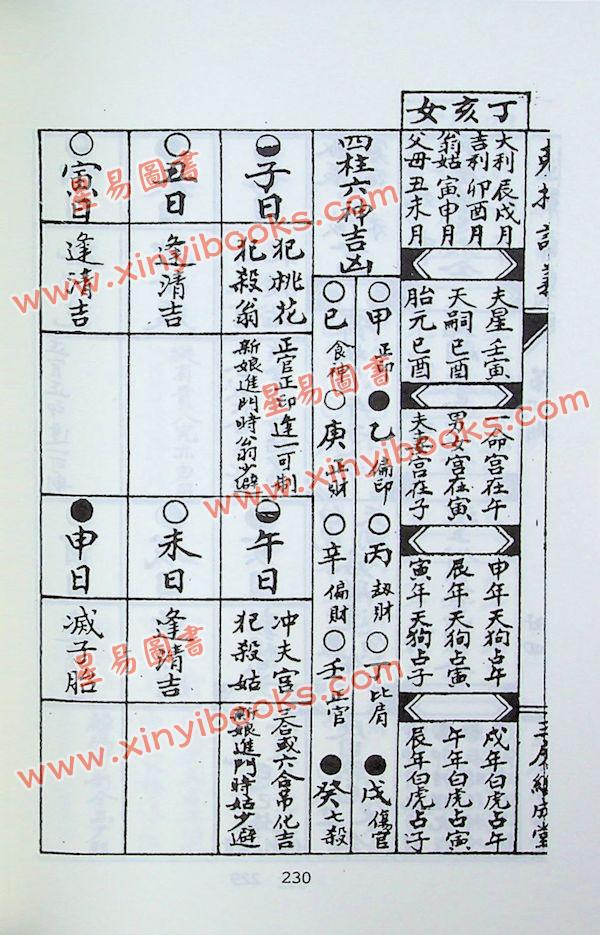 丁亥女
大利辰戌月
吉利卯酉月
翁姑寅申月
父母丑未月
夫星壬寅
天嗣己酉
胎元己酉
一命宮在午
男女宮在寅
夫妻宮在子
申年天狗占午
辰年天狗占寅
寅年天狗占子
戌年白虎占午
午年白虎占寅
辰年白虎占子
四柱六神吉凶
甲正印
乙偏印
丙劫財
丁比肩
戊傷官
己食神
庚正財
辛偏財
壬正官
癸七殺
子日
犯桃花
犯殺翁
正官正印逢一可制
新娘進門時翁少避
午日
冲夫宮
犯殺姑
三合或六合吊化吉
新娘進門時姑少避
丑日
逢清吉
未日
逢清吉
寅日
逢清吉
申日
滅子胎
230
星易圖書
www.xinyibooks.com
星易圖書
www.xinyibooks.com
星易圖書
www.xinyibooks.com
星易圖書
www.xinyibooks.com